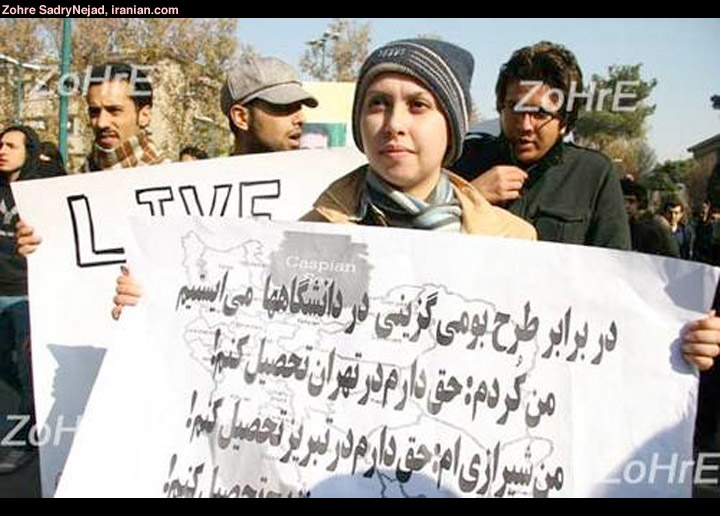 Zohre SadryNejad, iranian.com
ZoHrE
ZoHrE
LIVE
Caspian
در برابر طرح بومی گزینی در دانشگاهها می ایستیم
من کُردم: حق دارم در تهران تحصیل کنم!
من شیرازی ام: حق دارم در تبریز تحصیل کنم!
تحصیل کنم!
ZoH
ZoHrE